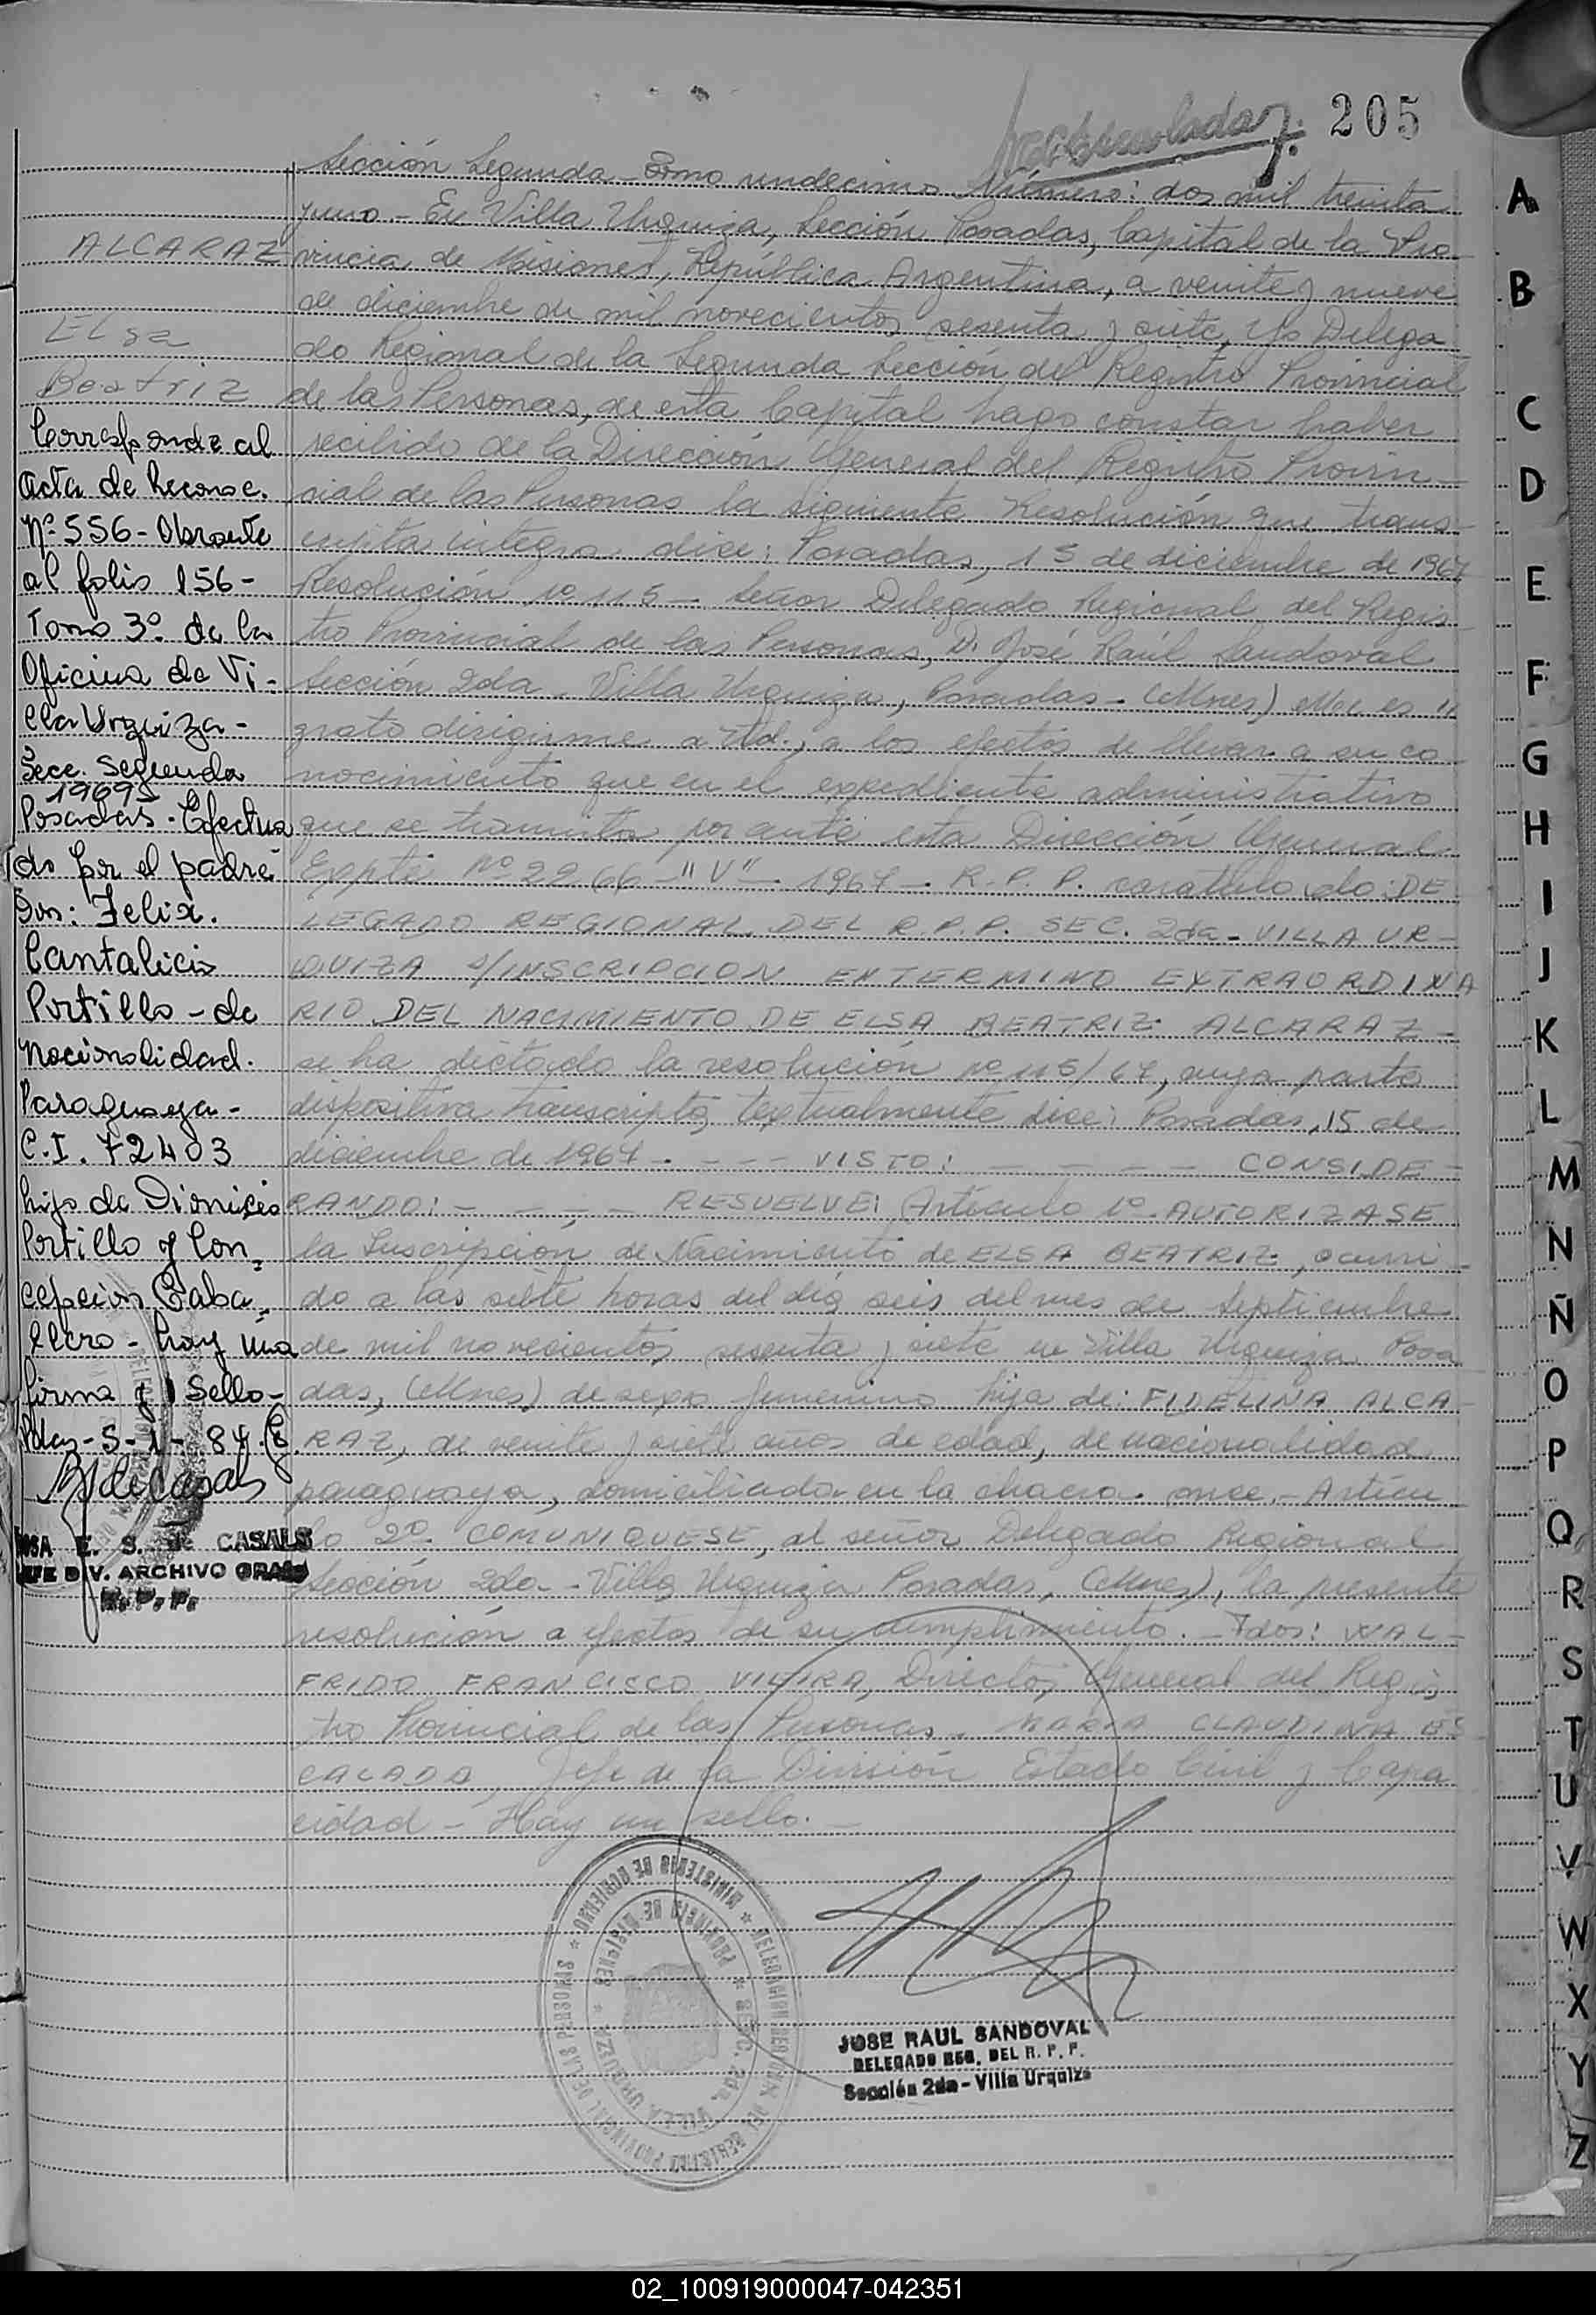 205
Sección Segunda - Tomo undecimo Número: dos mil treinta
y uno - En Villa Urquiza, Sección Posadas, Capital de la Pro-
vincia de Misiones, República Argentina, a veinte y nueve
de diciembre de mil novecientos sesenta y siete, Yo Delega-
do Regional de la Segunda Sección del Registro Provincial
de las Personas, de esta Capital hago constar haber
recibido de la Dirección General del Registro Provin-
cial de las Personas la siguiente Resolución que trans-
cripta integra dice: Posadas, 15 de diciembre de 1967
Resolución nº 115 - Señor Delegado Regional del Regis-
tro Provincial de las Personas, D. José Raúl Sandoval
Sección 2da - Villa Urquiza, Posadas - (Mnes) Me es
grato dirigirme a Ud., a los efectos de llevar a su co-
nocimiento que en el expediente administrativo
que se tramita por ante esta Dirección General
Expte Nº 2266 - "V" - 1967 - R.P.P. caratulado: DE
LEGADO REGIONAL DEL R.P.P. SEC. 2da - VILLA UR-
QUIZA S/INSCRIPCION EN TERMINO EXTRAORDINA
RIO DEL NACIMIENTO DE ELSA BEATRIZ ALCARAZ -
se ha dictado la resolución nº 115/67, cuya parte
dispositiva transcripta, textualmente dice: Posadas, 15 de
diciembre de 1967 - - - - VISTO: - - - - - CONSIDE-
RANDO: - - - - - RESUELVE: Artículo 1º AUTORIZASE
la Inscripción de Nacimiento de ELSA BEATRIZ, ocurri-
do a las siete horas del día seis del mes de Septiembre
de mil novecientos sesenta y siete en Villa Urquiza Posa
das, (Mnes) de sexo femenino hija de: FIDELINA ALCA-
RAZ, de veinte y siete años de edad, de nacionalidad
paraguaya, domiciliada en la chacra once. - Artícu
lo 2º COMUNIQUESE, al señor Delegado Regional
Sección 2da - Villa Urquiza Posadas, (Mnes), la presente
resolución a efectos de su cumplimiento. - Fdos: WAL-
FRIDO FRANCISCO VIEIRA, Director General del Regis
tro Provincial de las Personas. MARIA CLAUDINA ES
CALADA, Jefe de la División Estado Civil y Capa
cidad - Hay un sello. -
ALCARAZ
ELsa
Beatriz
Corresponde al
acta de Reconoc.
Nº 556 - Obrante
al folio 156 -
Tomo 3º de la
Oficina de Vi-
lla Urquiza -
Secc. Segunda
1969
Posadas - Efectua
do por el padre
Don: Felix
Cantalicio
Portillo - de
nacionalidad
Paraguaya -
C.I. 72403
hijo de Dionicio
Portillo y Con-
cepcion Caba-
llero - hay una
firma y 1 Sello -
Pdas - 5-1-84.
ROSA E. S. de CASALS
JEFE DIV. ARCHIVO GRAL
R. P. P.
MINISTERIO DE GOBIERNO * DELEGACION REGIONAL DEL REGISTRO PROVINCIAL DE LAS PERSONAS *
PROVINCIA DE MISIONES * SECC. 2da. VILLA URQUIZA *
JOSE RAUL SANDOVAL
DELEGADO REG. DEL R. P. P.
Sección 2da - Villa Urquiza
A
B
C
D
E
F
G
H
I
J
K
L
M
N
Ñ
O
P
Q
R
S
T
U
V
W
X
Y
Z
02_100919000047-042351